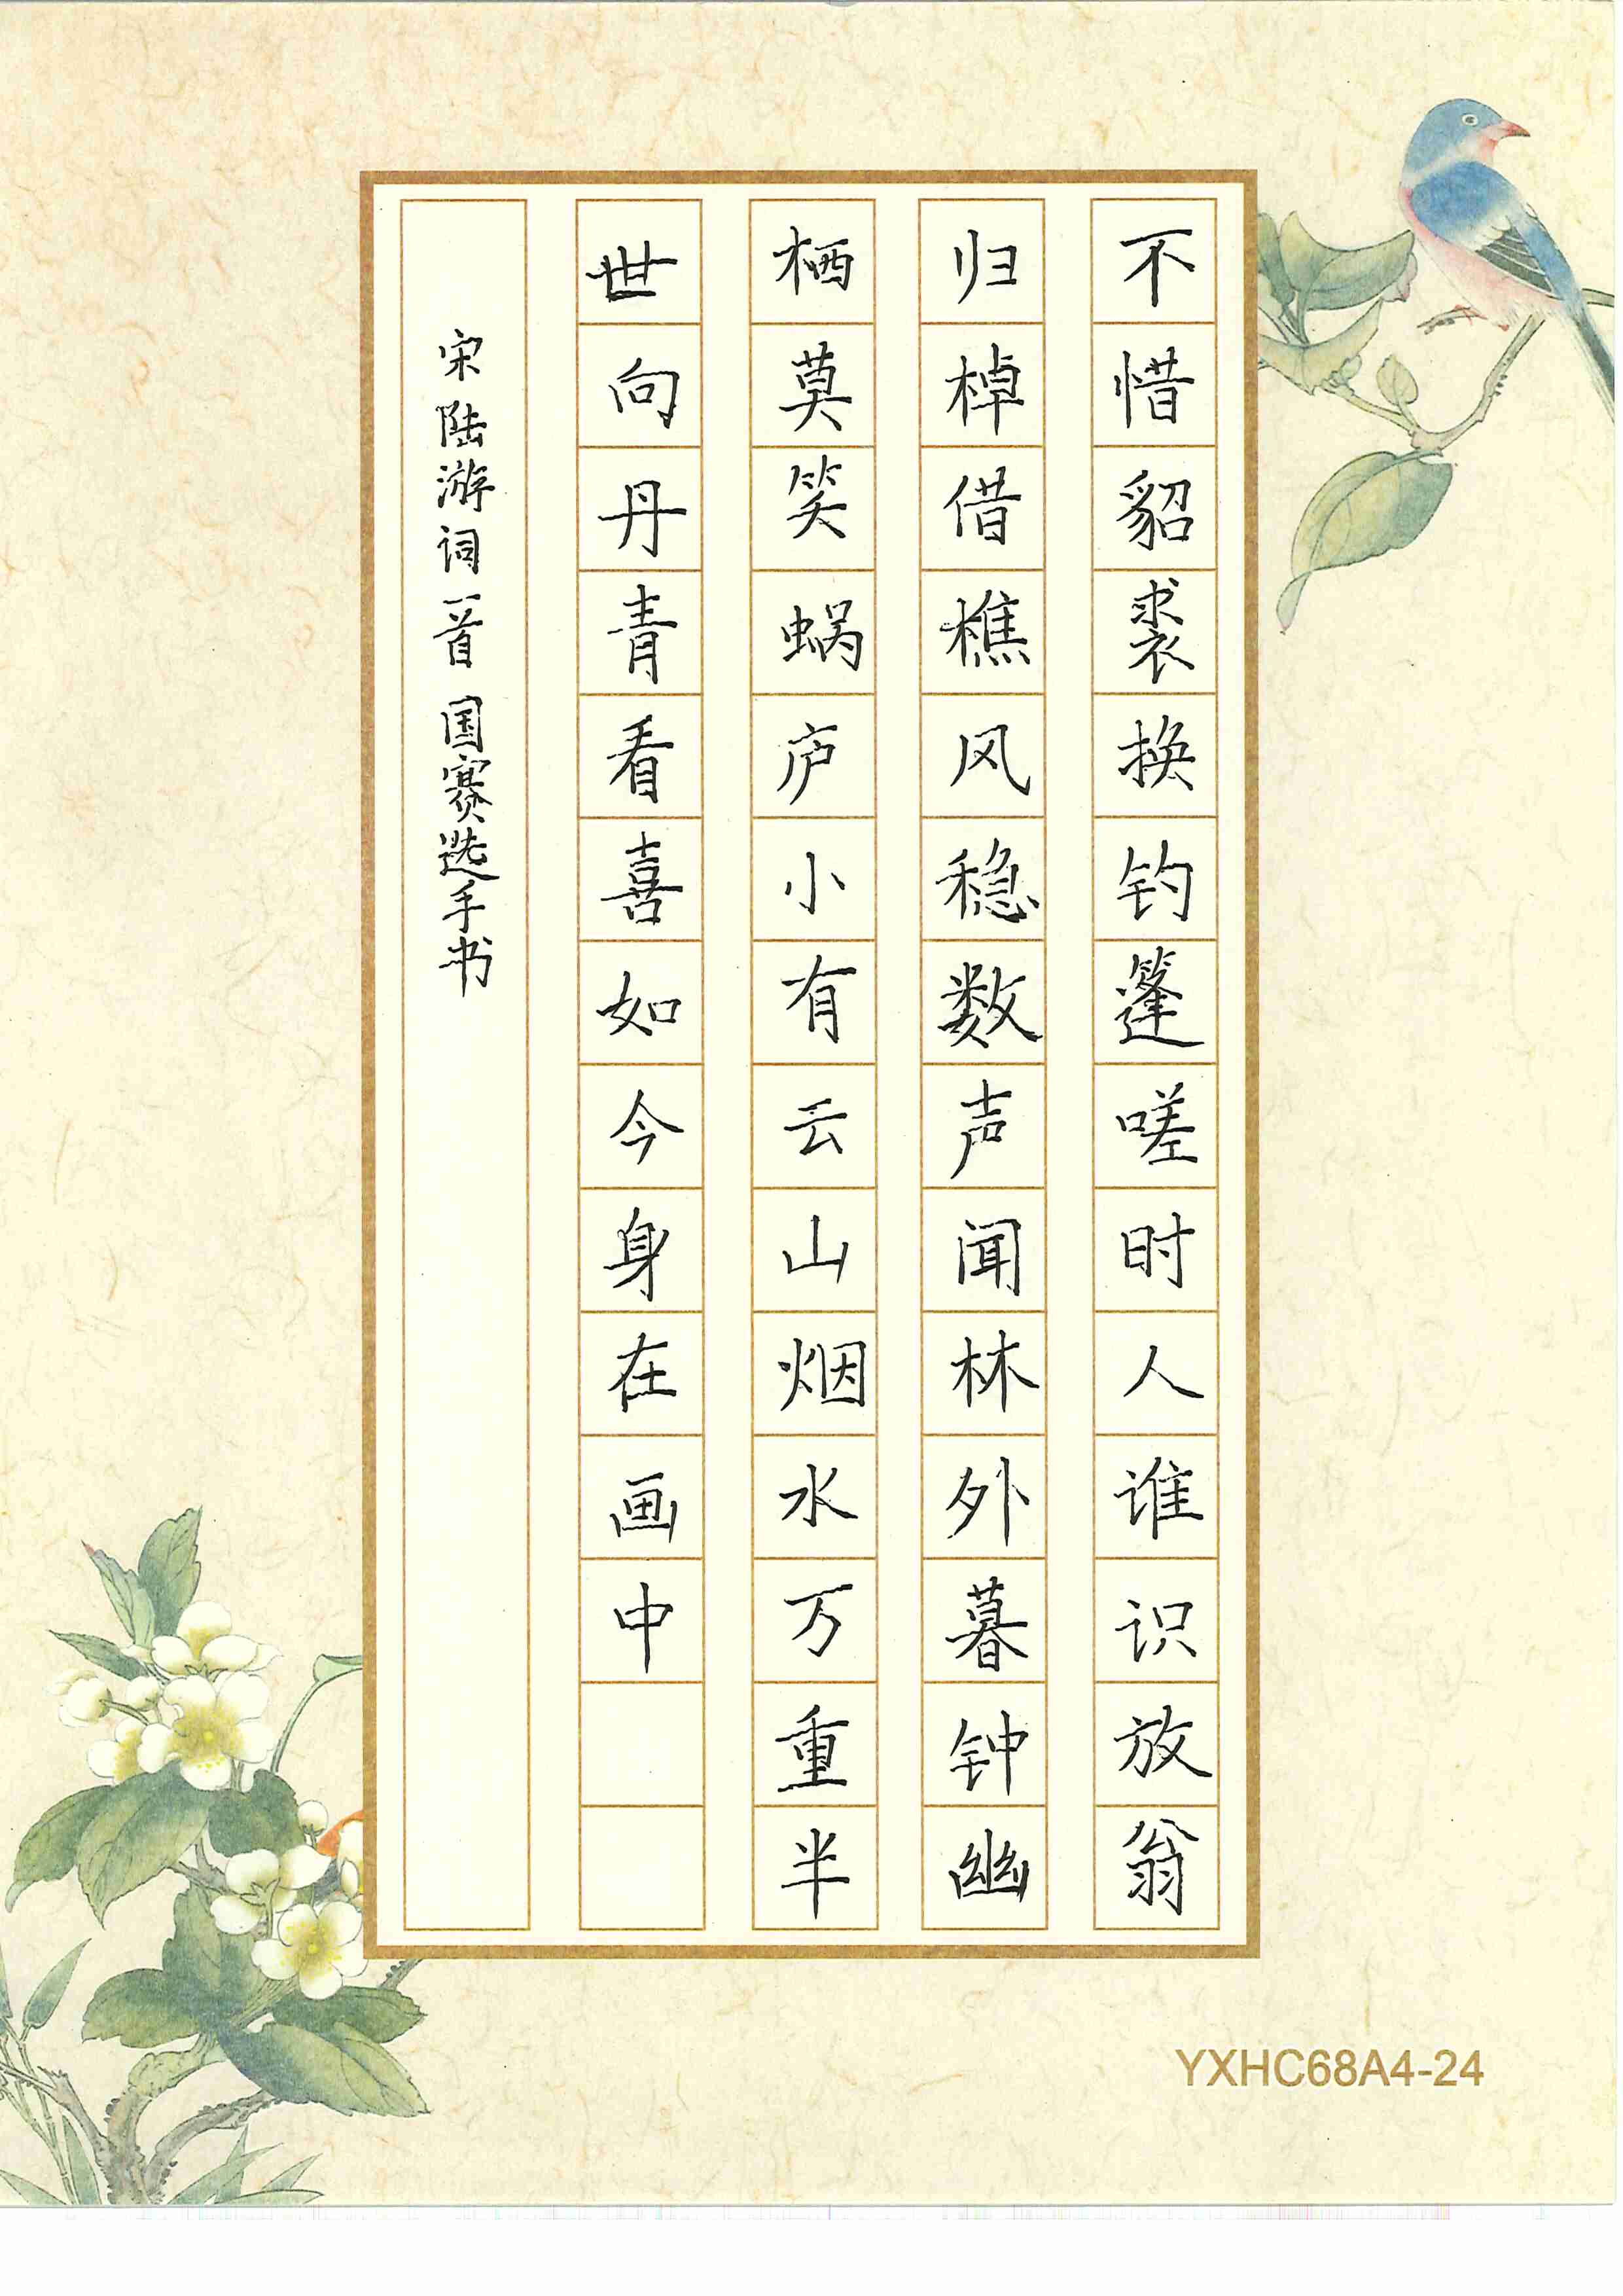 不惜貂裘换钓篷嗟时人谁识放翁
归棹借樵风稳数声闻林外暮钟幽
栖莫笑蜗庐小有云山烟水万重半
世向丹青看喜如今身在画中
宋陆游词一首 国赛选手书
YXHC68A4-24